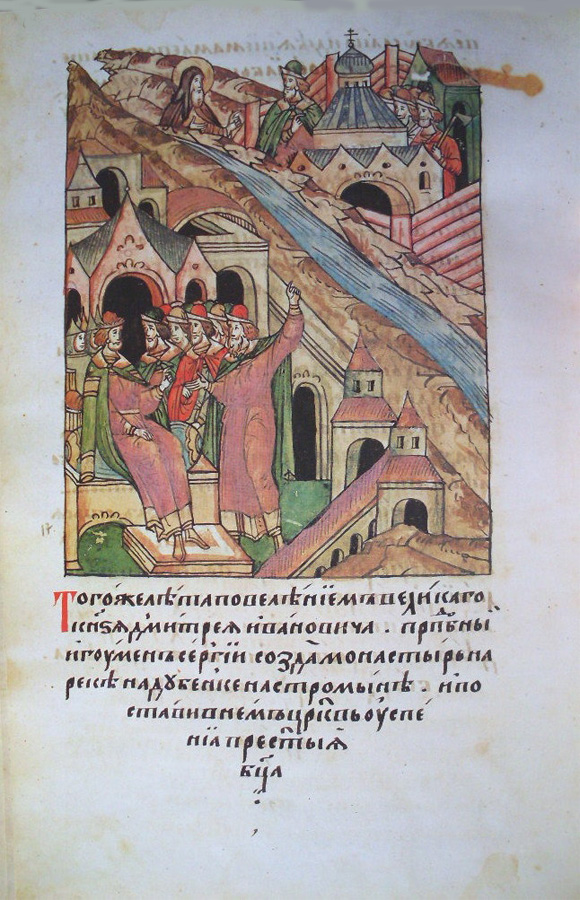 Тогожелѣтаповелѣнїемъвеликаго
кн҃ѕѧдмитреѧивановича . прпⷣбны
игоуменъсергїи создамонастырьна
реке надубенкенастромынѣ . ипо
ставивнемъцр҃квьоуспе
нїѧпрест҃ыѧ
бц҃а